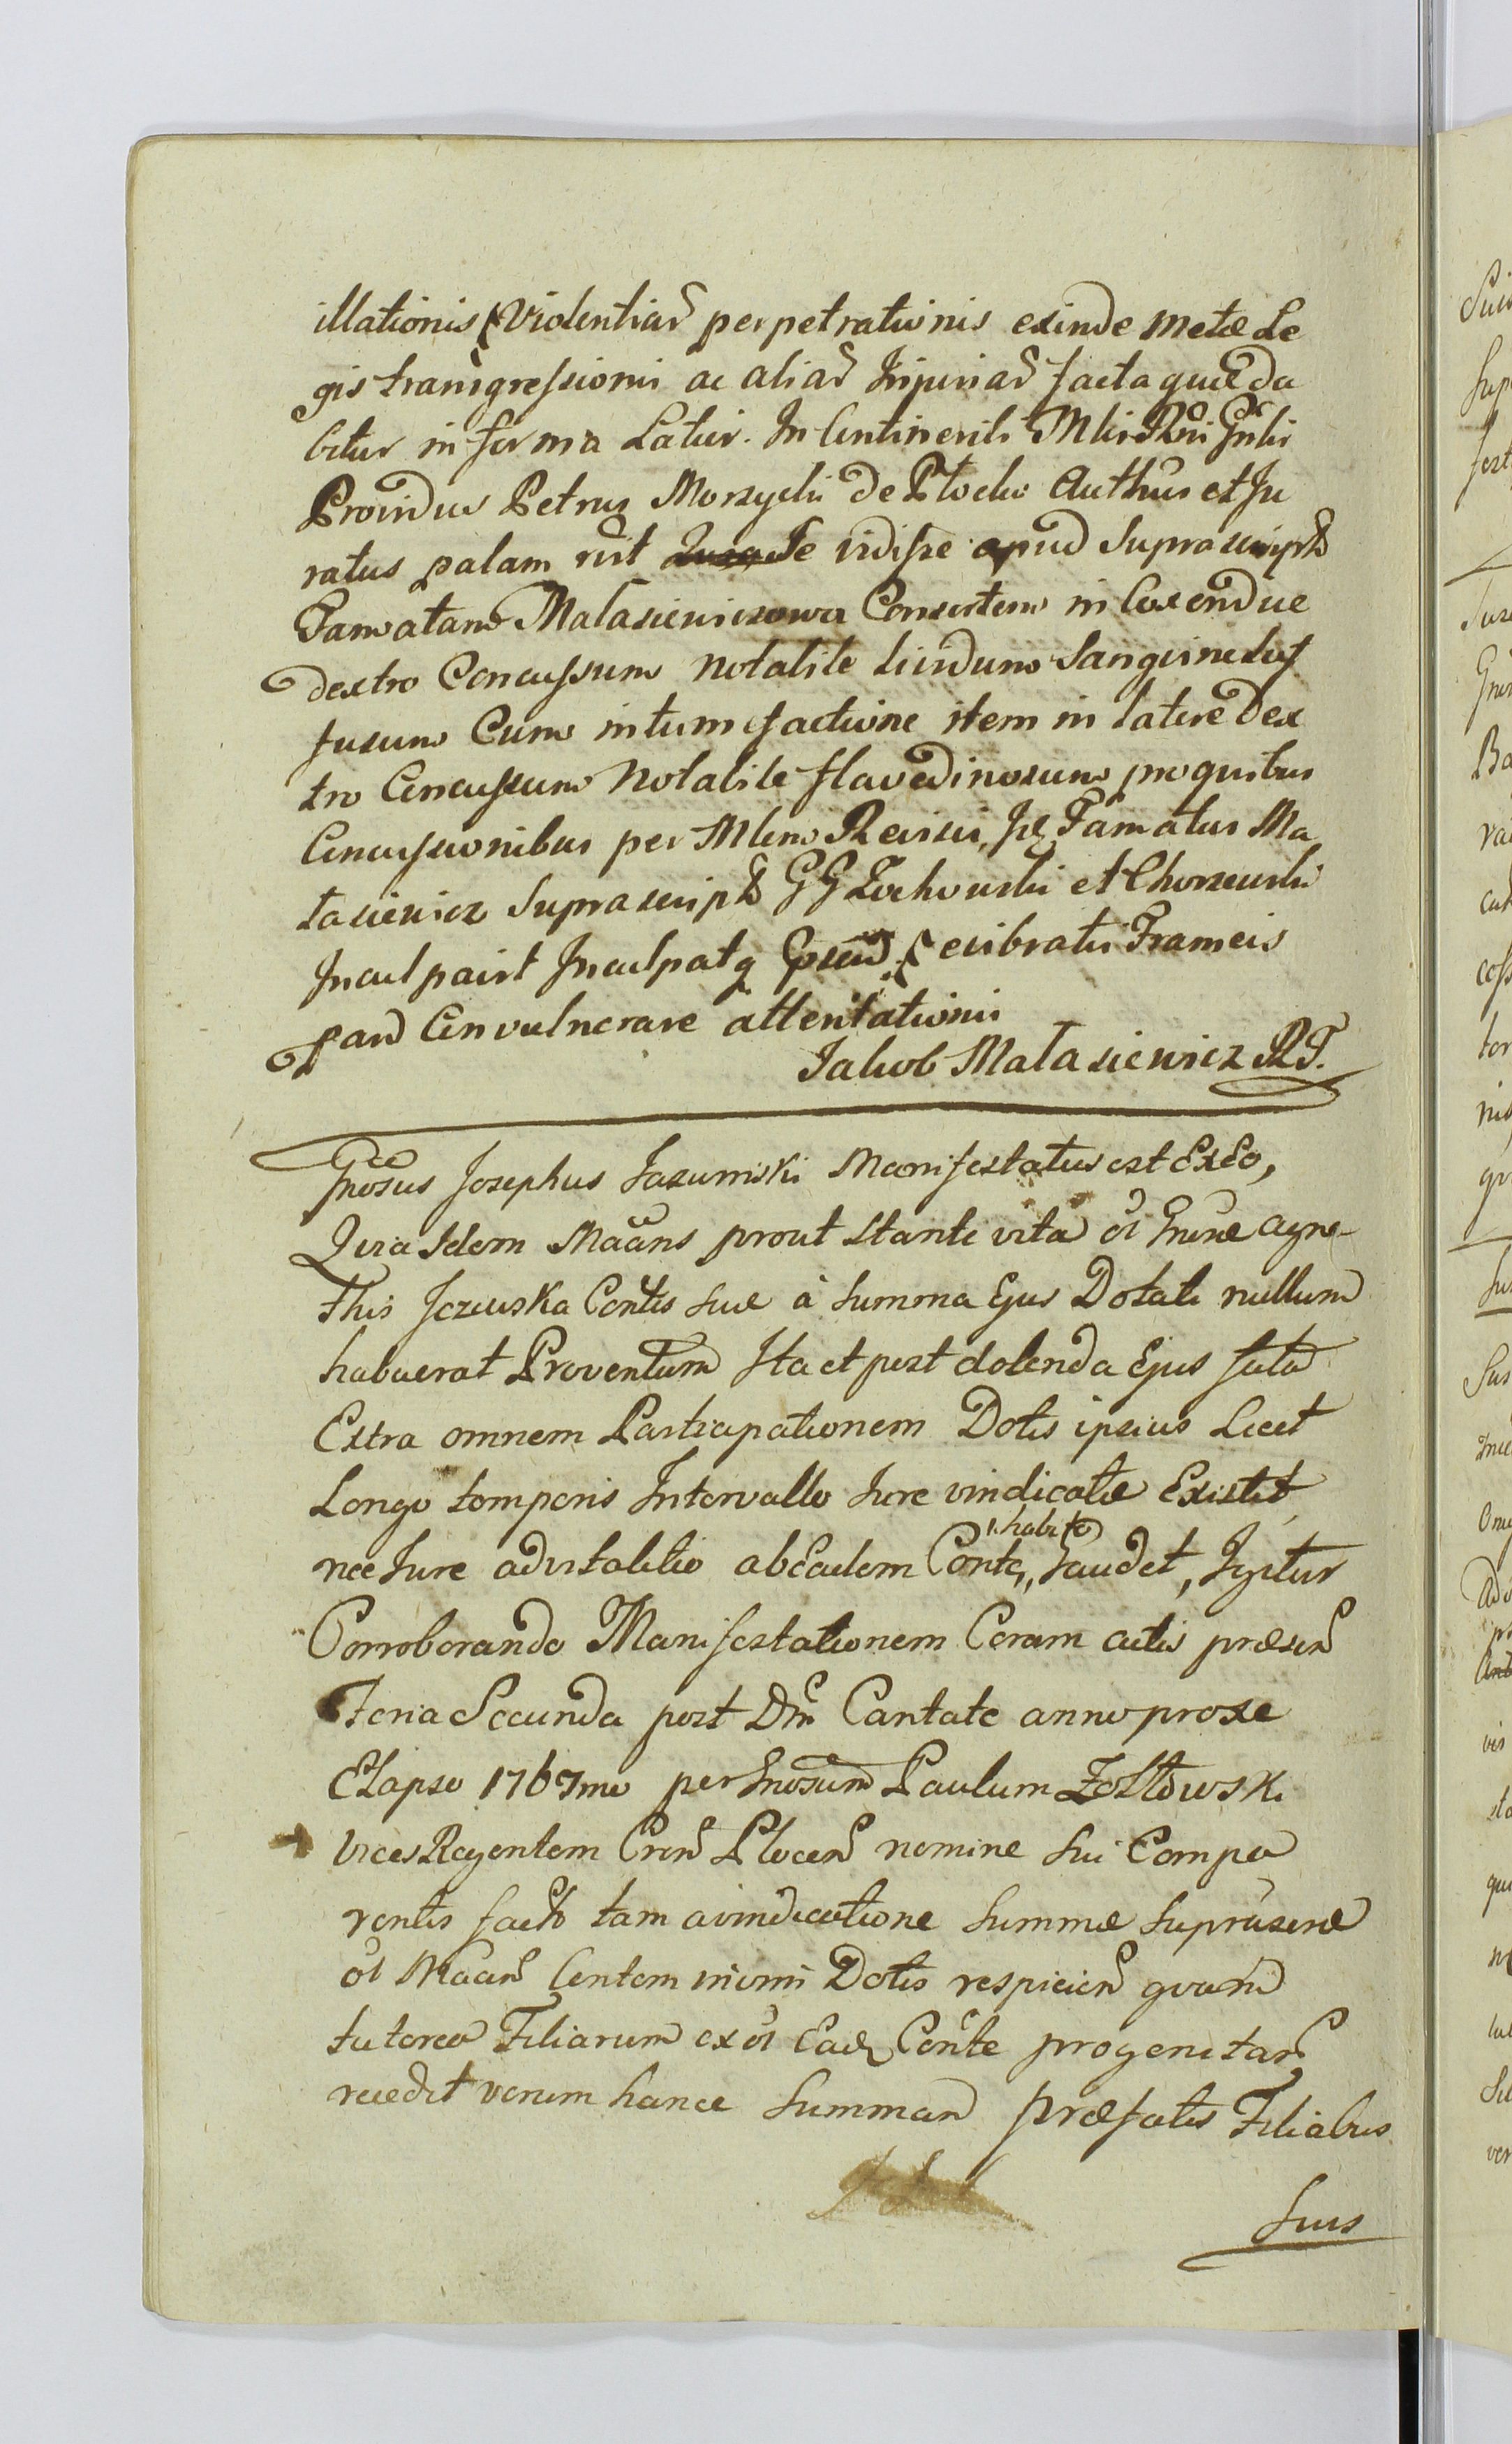 illationis Violentiar perpetrationis exinde metæ Le
gis transgressionis ac aliar Injuriar facta quæ da
bitur in forma Latur. In Continenti Mlis Rni Gnlis
Providus Petrus Morzycki de Płocko Authus et Ju
ratus palam rlit Se vidisse apud Suprascript
Famatam Małasiewiczowa Consortem in Coxendice
dextro Concussum notabile lividum Sanguine suf
fusum Cum intumefactione item in latere dex
tro Concussum Notabile flavedinosum pro quibus
Concussionibus per Mlem Recisis, Famatus Ma
łasiewicz Suprascript GG Żochowski et Chorzewski
Inculpavit Inculpatq exibratis Frameis
Convulnerare attentationis
Jakob Małasiewicz RT.
Gnosus Josephus Jazumski Manifestatus est ExEo,
Quia Idem Maans prout stante vita ol Gnæ Agne-
this Jezewska Contis suæ à summa Ejus Dotali nullum
habuerat Proventum Ita et post dolenda Ejus fata
Extra omnem Participationem Dotis ipsius Licet
Longo temporis Intervallo Jure vindicatæ Existit,
nec Jure advitalitio ab eadem Conte „habito Gaudet, Igitur
Corroborando Manifestationem Coram actis præsen
Feria Secunda post Dm Cantate anno proxe
Elapso 1767mo per Gnosum Paulum Żółtowski
Vices Regentem Cren Plocen nomine sui Compa
rentis fact tam a vindicatione Summæ suprascræ
ol Maan Dotis respicien quam
tutorea Filiarum ex ol Ead Conte progenitar
recedit verum hance Summam præfatis Filiabus
Suis